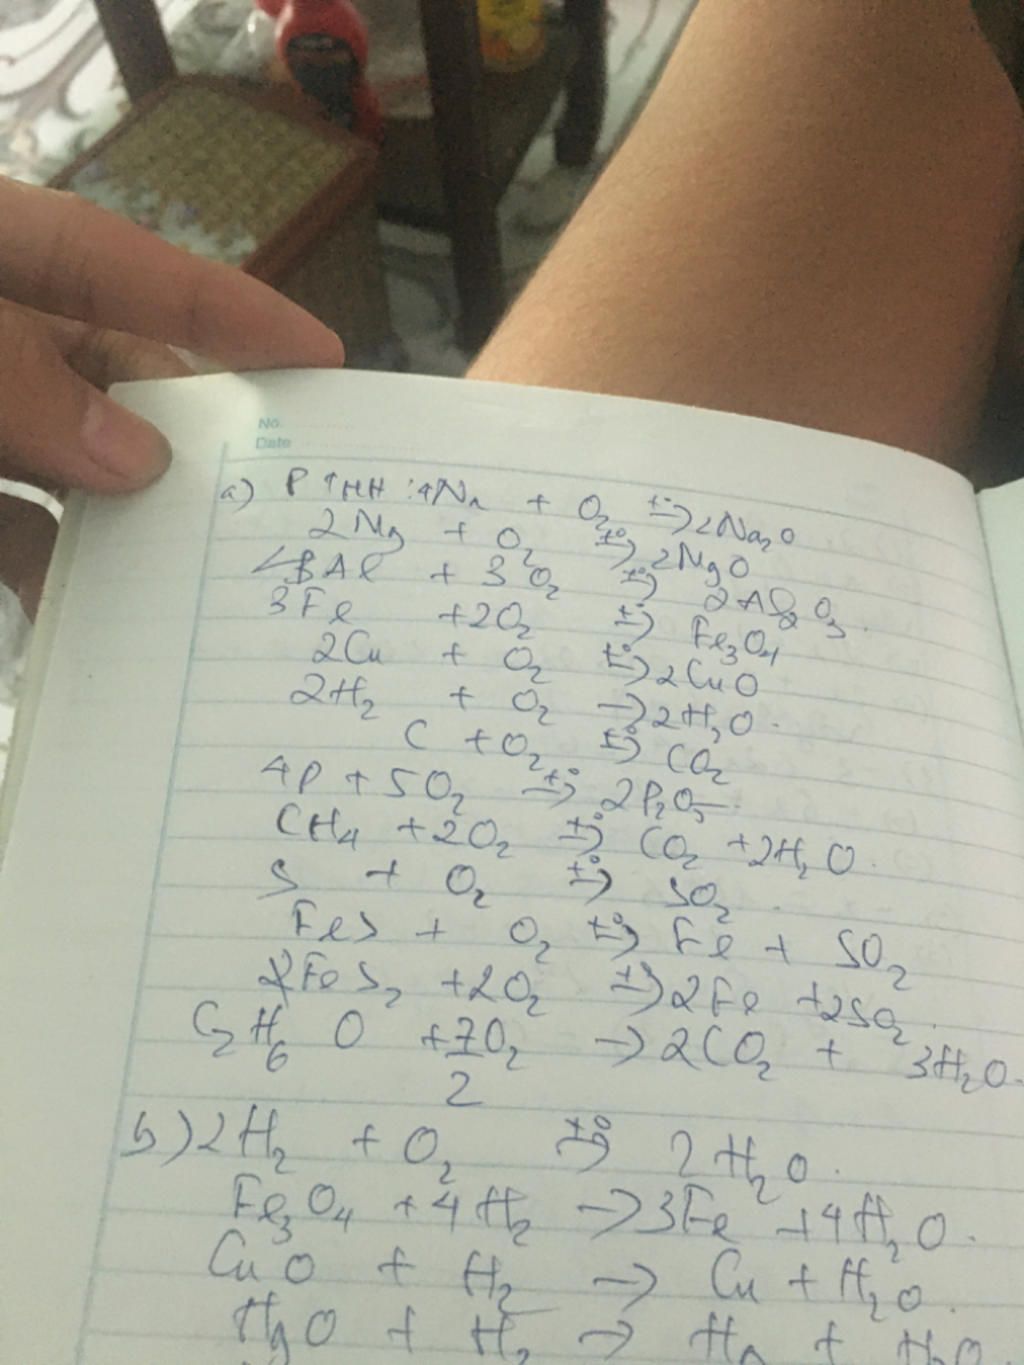 No.
Date
a) PTHH: 4Na + O₂ t°→ 2Na₂O
2Mg + O₂ t°→ 2MgO
4Al + 3O₂ t°→ 2Al₂O₃.
3Fe + 2O₂ t°→ Fe₃O₄
2Cu + O₂ t°→ 2CuO
2H₂ + O₂ → 2H₂O.
C + O₂ t°→ CO₂
4P + 5O₂ t°→ 2P₂O₅.
CH₄ + 2O₂ t°→ CO₂ + 2H₂O.
S + O₂ t°→ SO₂.
FeS + O₂ t°→ Fe + SO₂
FeS₂ + 2O₂ t°→ 2Fe + 2SO₂.
C₂H₆O + 7/2O₂ → 2CO₂ + 3H₂O.
b) 2H₂ + O₂ t°→ 2H₂O.
Fe₃O₄ + 4H₂ → 3Fe + 4H₂O.
CuO + H₂ → Cu + H₂O.
HgO + H₂ → Hg + H₂O